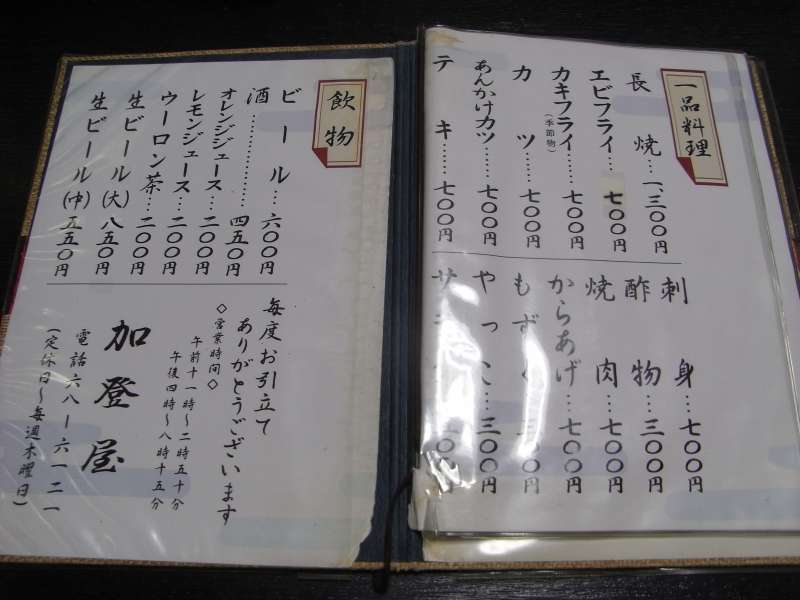 一品料理
長焼…一、三〇〇円
エビフライ…七〇〇円
カキフライ…七〇〇円
(季節物)
カツ…七〇〇円
あんかけカツ…七〇〇円
テキ…七〇〇円
刺身…七〇〇円
酢物…三〇〇円
焼肉…七〇〇円
からあげ…七〇〇円
もずく…三〇〇円
やっこ…三〇〇円
飲物
ビール…六〇〇円
酒…四五〇円
オレンジジュース…二〇〇円
レモンジュース…二〇〇円
ウーロン茶…二〇〇円
生ビール(大)八五〇円
生ビール(中)五五〇円
毎度お引立て
ありがとうございます
◇営業時間◇
午前十一時〜二時五十分
午後四時〜八時十五分
加登屋
電話六八ー六一二一
(定休日〜毎週木曜日)